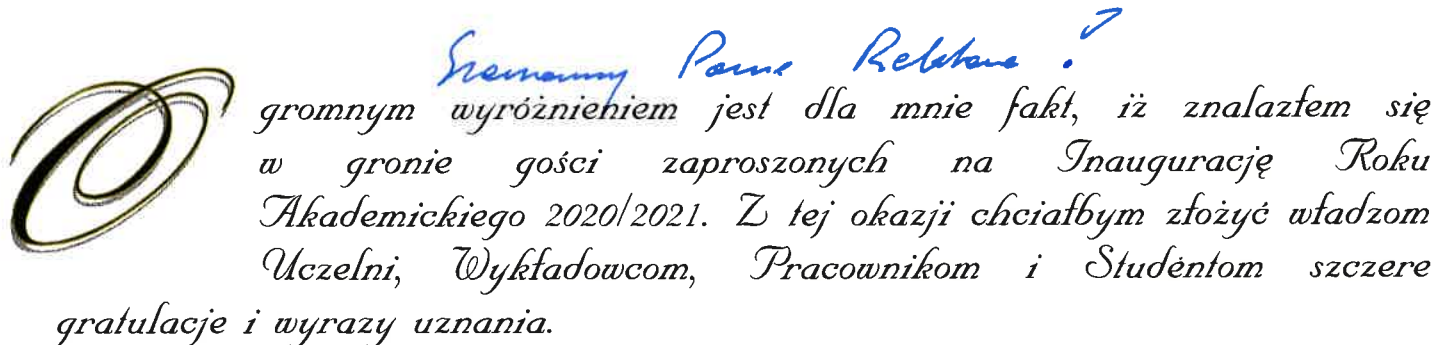 Szanowny Panie Rektorze!
Ogromnym wyróżnieniem jest dla mnie fakt, iż znalazłem się
w gronie gości zaproszonych na Inaugurację Roku
Akademickiego 2020/2021. Z tej okazji chciałbym złożyć władzom
Uczelni, Wykładowcom, Pracownikom i Studentom szczere
gratulacje i wyrazy uznania.